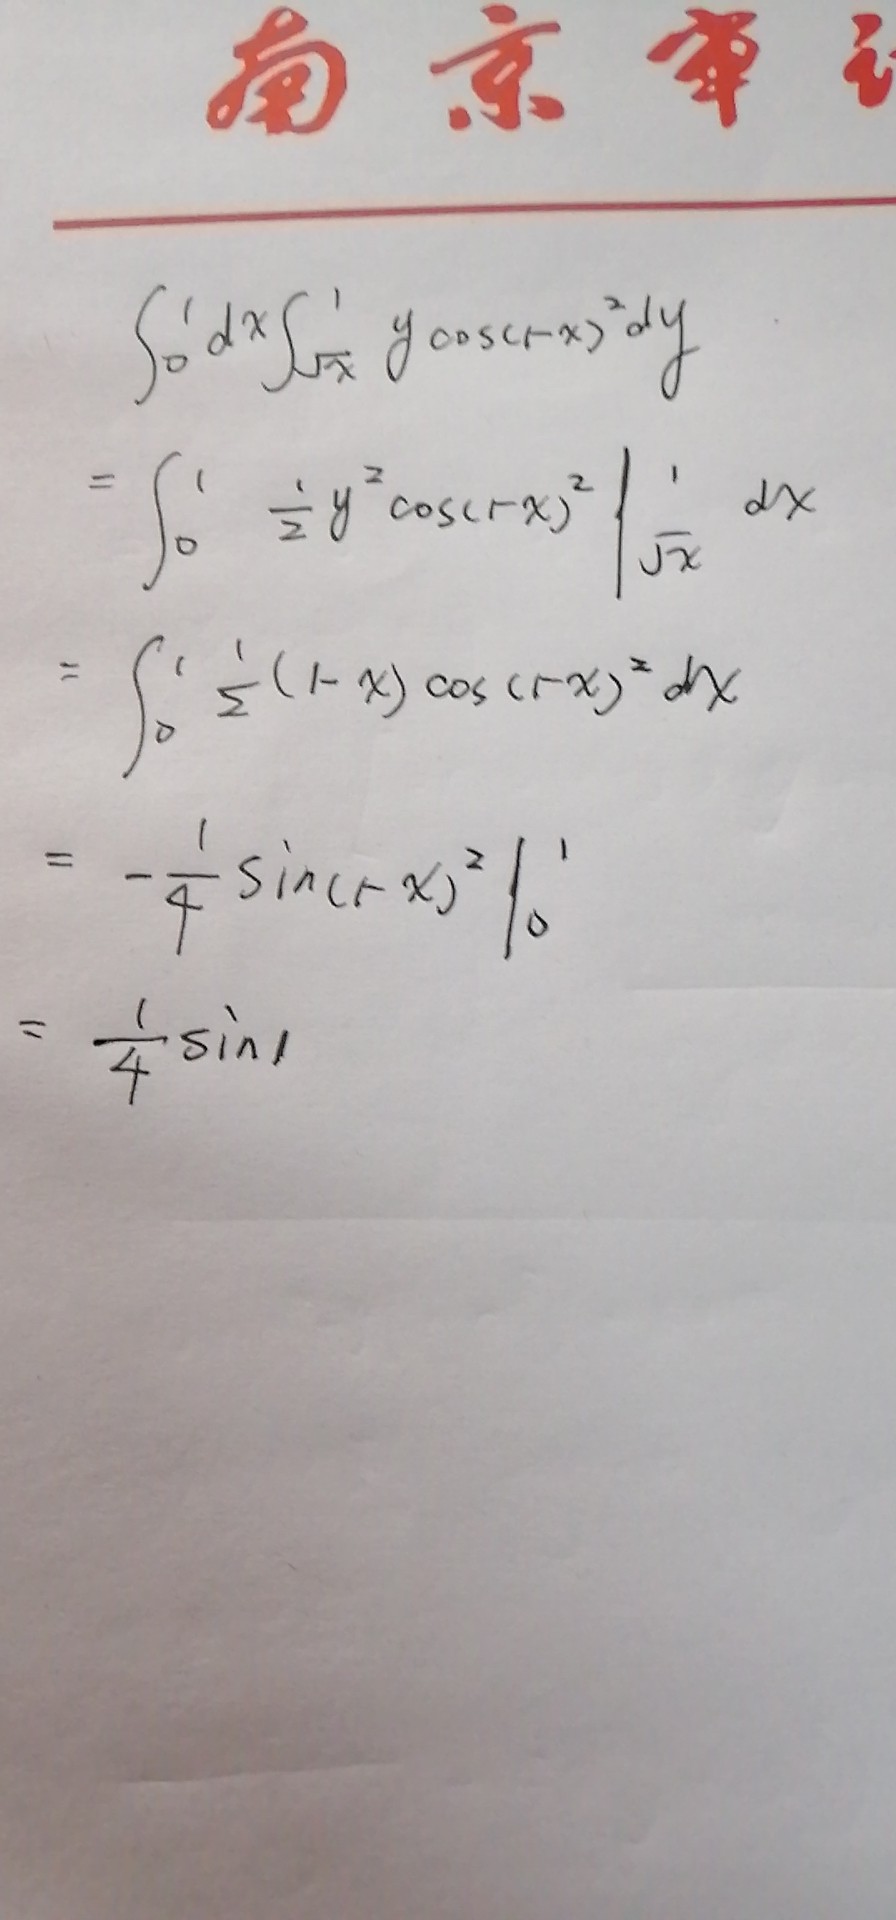 南京审
∫₀¹ dx ∫_{√x}^1 y cos(1-x)² dy
= ∫₀¹ ½ y² cos(1-x)² |_{√x}^1 dx
= ∫₀¹ ½ (1-x) cos(1-x)² dx
= -¼ sin(1-x)² |₀¹
= ¼ sin1